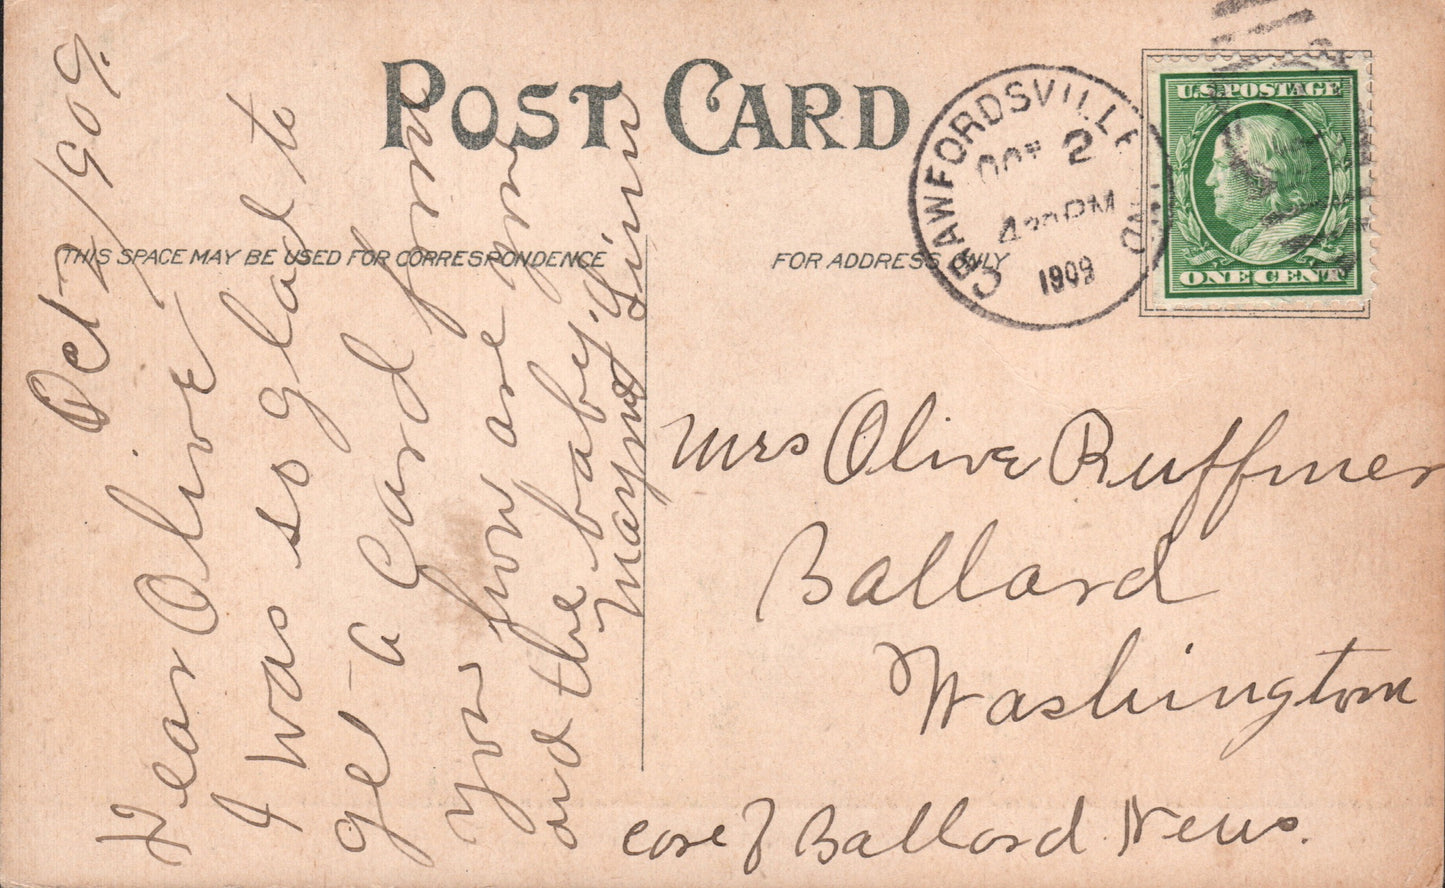 POST CARD
THIS SPACE MAY BE USED FOR CORRESPONDENCE
FOR ADDRESS ONLY
CRAWFORDSVILLE
IND.
OCT 2
430 PM
1909
U.S. POSTAGE
ONE CENT
Oct 2/1909.
Dear Olive
I was so glad to
get a Card from
you how are you
and the baby.
Mrs Olive Ruffner
Ballard
Washington
care of Ballard News.